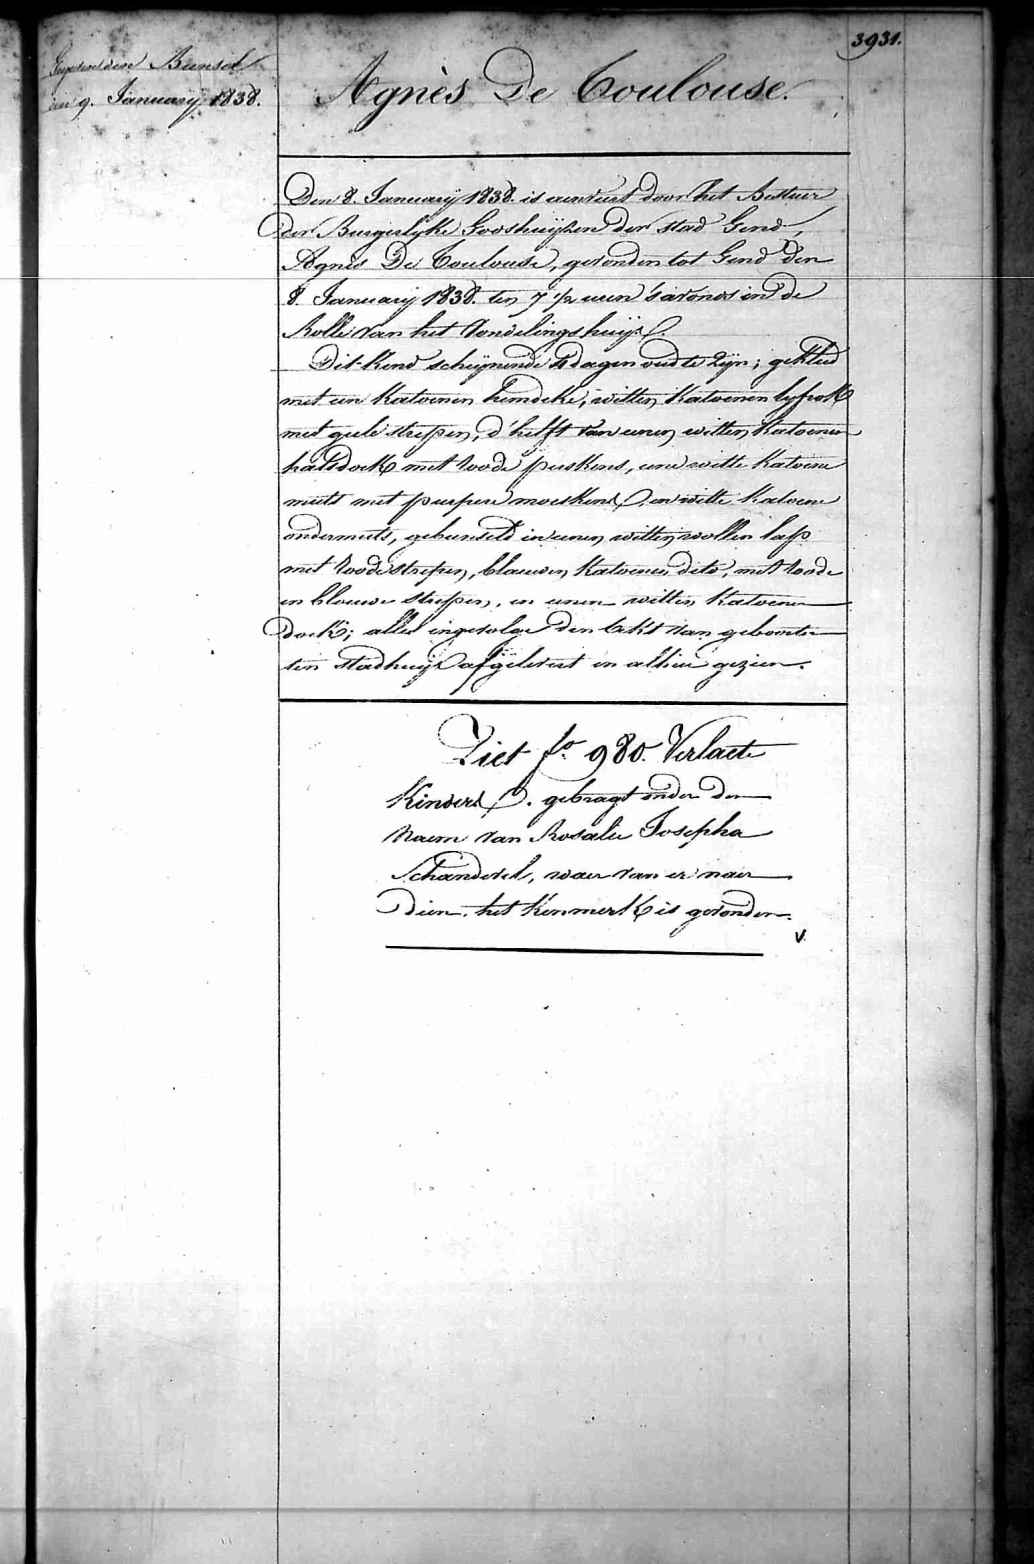 3931.
den Bunsel
den 9. January 1838.
Agnès De Coulouse.
Den 8. January 1838. is aenveirt door het Bestuer
der Burgerlyke Godshuyzen der stad Gend,
Agnès De Coulouse, gevonden tot Gend den
8. January 1838. ten 7 ½ uren 's avonds in de
Rolle van het Vondelingshuys.
Dit kind schynende dagen oud te zyn; gekleed
met een katoenen hemdeke, witten katoenen lyfrok
met geele strepen, d'helft van eenen witten katoenen
halsdoek met roode puskens, eene witte katoene
muts met purpere moeskens, en witte katoene
ondermuts, gebunseld in eenen witten wollen lap
met roode strepen, blauwen katoenen dito, met roode
en blauwe strepen, en eenen witten katoenen
doek; alles ingevolge den akt van geboorte
ten stadhuyze afgelevert en alhier gezien.
Ziet fo. 980. Verlaete
Kinders, gebragt onder den
Naem van Rosalie Josepha
Schandevel, waer van er naer
dien het kenmerk is gevonden.
V.